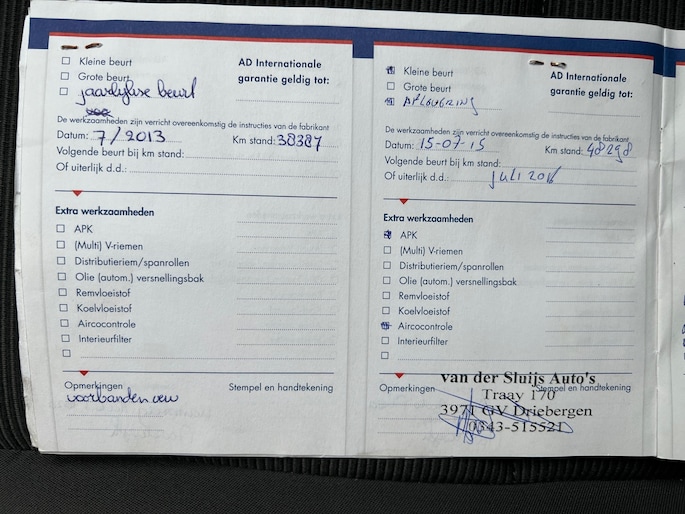 Kleine beurt
Grote beurt
jaarlijkse beurt
AD Internationale
garantie geldig tot:
De werkzaamheden zijn verricht overeenkomstig de instructies van de fabrikant
Datum: 7/2013 Km stand: 38387
Volgende beurt bij km stand:
Of uiterlijk d.d.:
Extra werkzaamheden
APK
(Multi) V-riemen
Distributieriem/spanrollen
Olie (autom.) versnellingsbak
Remvloeistof
Koelvloeistof
Aircocontrole
Interieurfilter
Opmerkingen Stempel en handtekening
voorbanden vew
Kleine beurt
Grote beurt
AFLEVERING
AD Internationale
garantie geldig tot:
De werkzaamheden zijn verricht overeenkomstig de instructies van de fabrikant
Datum: 15-07-15 Km stand: 48298
Volgende beurt bij km stand:
Of uiterlijk d.d.: juli 2016
Extra werkzaamheden
APK
(Multi) V-riemen
Distributieriem/spanrollen
Olie (autom.) versnellingsbak
Remvloeistof
Koelvloeistof
Aircocontrole
Interieurfilter
Opmerkingen Stempel en handtekening
van der Sluijs Auto's
Traay 170
3971 GV Driebergen
0343-515521